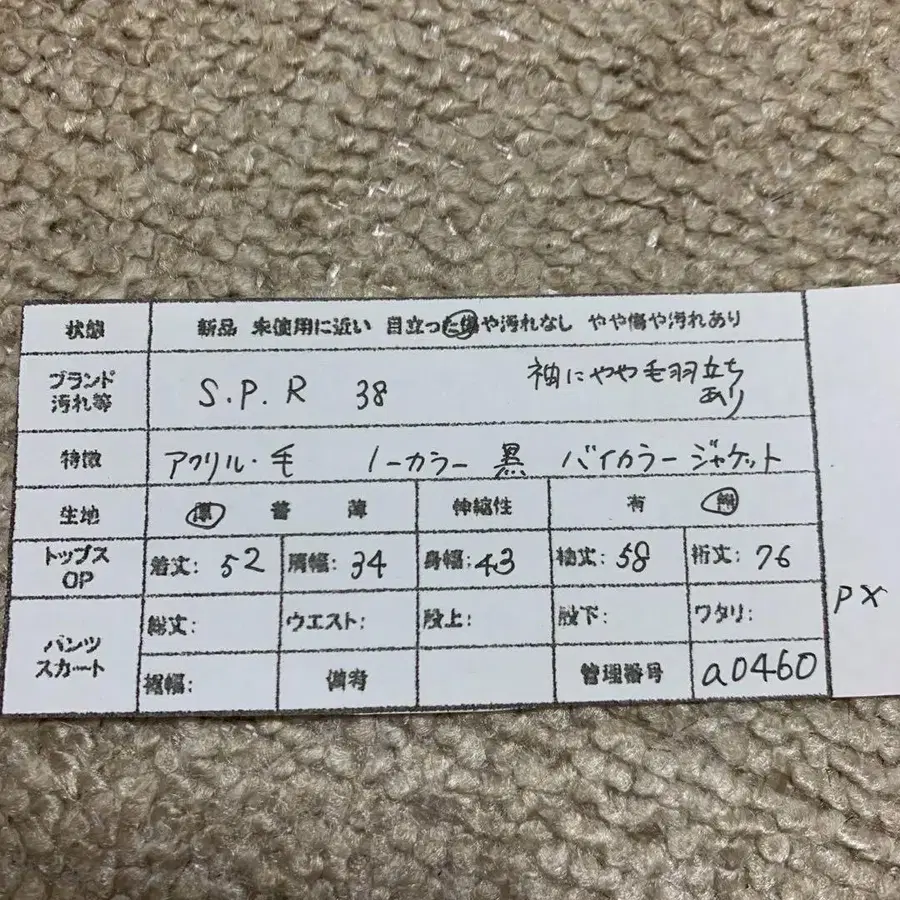 状態 新品 未使用に近い 目立った傷や汚れなし やや傷や汚れあり
ブランド 汚れ等 S.P.R 38 袖にやや毛羽立ち
あり
特徴 アクリル・毛 ノーカラー 黒 バイカラージャケット
生地 厚 普 薄 伸縮性 有 無
トップス OP 着丈: 52 肩幅: 34 身幅: 43 袖丈: 58 裄丈: 76
パンツ スカート 総丈: ウエスト: 股上: 股下: ワタリ:
裾幅: 備考 管理番号 a0460
PX